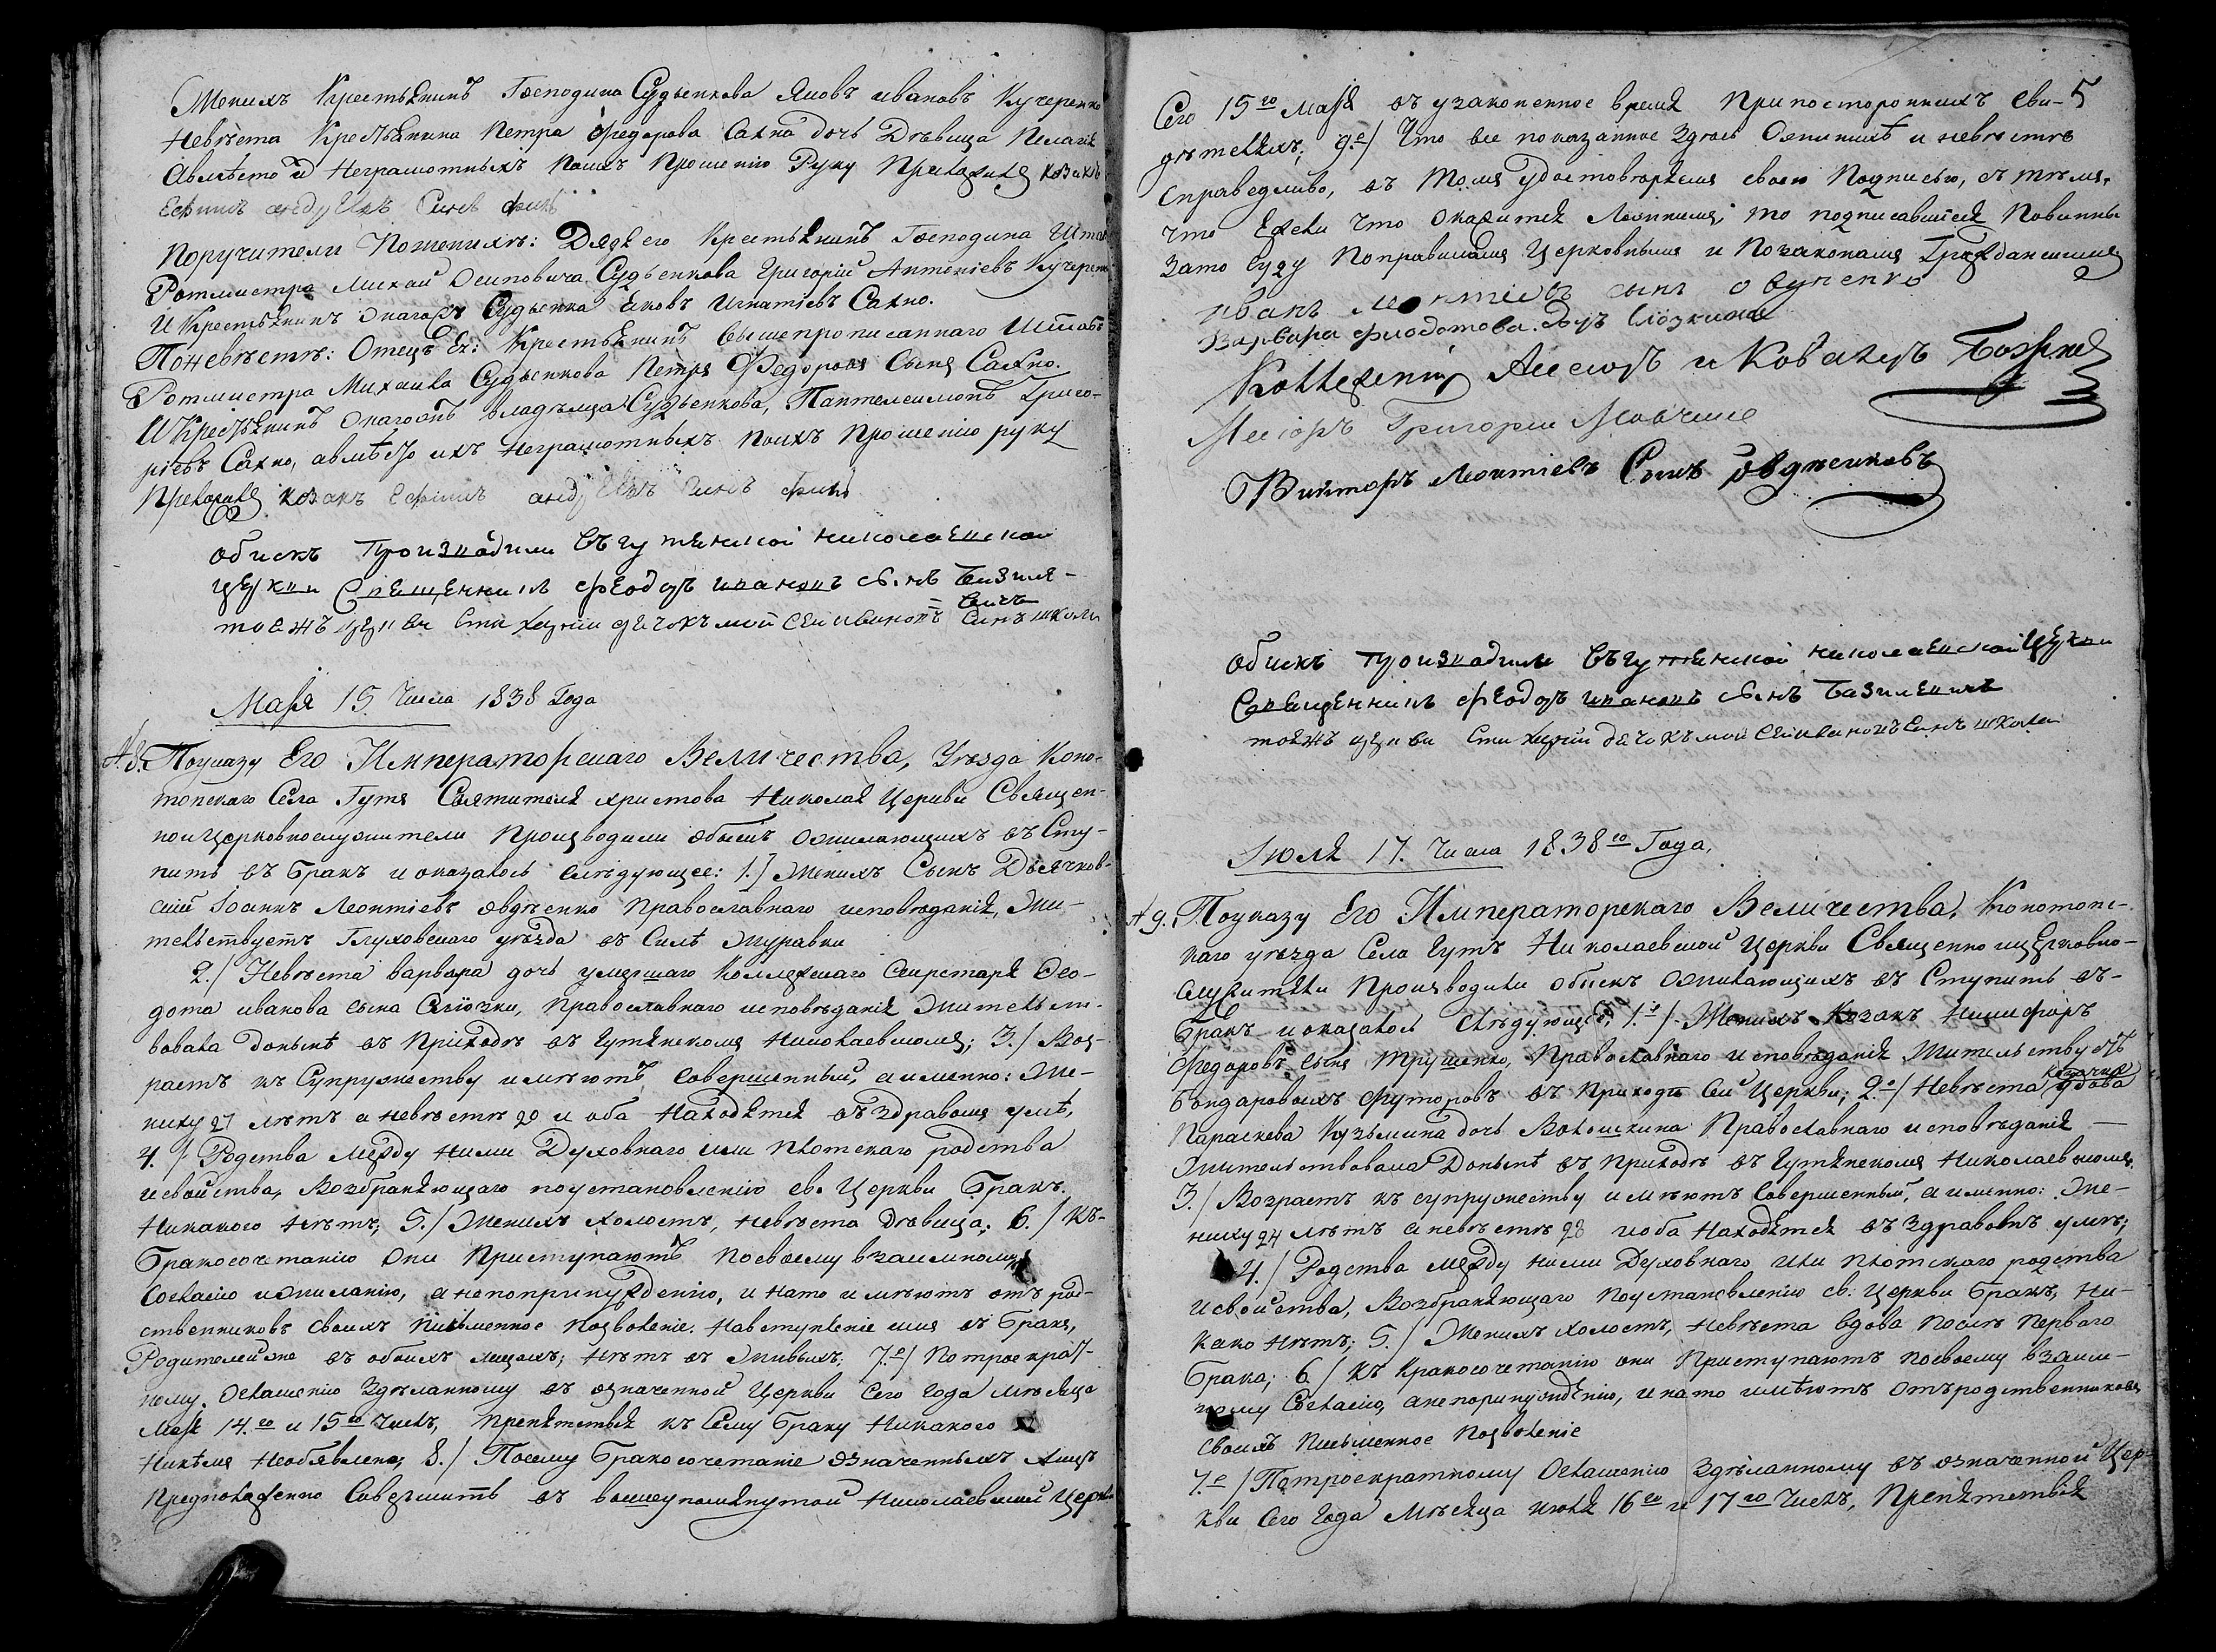 Женихъ Крестьянинъ Господина Судьенкова Яковъ ивановъ Кучеренко
Невѣста Крестьянина Петра Федорова Сахна дочь Дѣвица Пелагія
Авмѣсто и Неграмотныхъ Поихъ Прошенію Руку Приложилъ козакъ
Ефимъ
Поручители Поженихѣ: Дядя его Крестьянинъ Господина Штабъ
Ротмистра Михаи Осиповича Судьенкова Григорій Антоніевъ Кучеренко
И Крестьянинъ Онагожъ Судьенка Яковъ Игнатіевъ Сахно.
Поневѣстѣ: Отецъ Ея: Крестьянинъ вышепрописаннаго Штабъ
Ротмистра Михаила Судьенкова Петръ Федоровъ Сынъ Сахно.
И Крестьянинъ Онагожъ владѣльца Судьенкова, Пантелеимонъ Григо-
ріевъ Сахно, авмѣсто ихъ Неграмотныхъ Поихъ Прошенію руку
Приложилъ козакъ Ефимъ
обискъ Производили въ гутянской николаевской
церкви Священникъ Феодоръ ивановъ сынъ Базиле-
вичъ
тоежъ церкви Стихарній дячокъ
Маія 15. Числа 1838 Года
№ 8. Поуказу Его Императорскаго Величества, Уѣзда Коно-
топскаго Села Гутъ Святителя христова Николая Церкви Священ-
но и Церковнослужители Производили обыскъ ожилающихъ въ Сту-
пить въ Бракъ и оказалось слѣдующее: 1.) Женихъ Сынъ Дьячков-
скій Іоаннъ Леонтіевъ овдѣенко Православнаго исповѣданія, жи-
тельствуетъ Глуховскаго уѣзда въ Силѣ Журавки
2.) Невѣста варвара дочь умершаго Коллежскаго Секретаря Фео-
дота иванова сына Слюзки, Православнаго исповѣданія жительст-
вовала донынѣ въ Приходѣ въ Гутянскомъ Николаевскомъ; 3.) Воз-
растъ къ Супружеству имѣютъ совершенный, а именно: Же-
ниху 27 лѣтъ а невѣстѣ 20 и оба Находятся въ здравомъ умѣ,
4.) Родства между ними Духовнаго или Плотскаго родства
и свойства, Возбраняющаго поустановленію св. Церкви Бракъ.
Никакого нѣтъ; 5.) Женихъ холостъ, невѣста дѣвица; 6.) Къ-
Бракосочетанію Они Приступаютъ Посвоему взаимному
Согласію ижиланію, а непопринужденію, и нато имѣютъ отъ род-
ственниковъ своихъ Письменное Позволеніе. Навступленіе имъ въ Бракъ,
Родителейже въ обоихъ лицахъ; нѣтъ въ Живыхъ. 7.е) Потроекрат-
ному Оглашенію Здѣланному въ означенной Церкви сего Года мѣсяца
Маія 14.го и 15го Числъ, Препятствія къ Сему браку Никакого
Никѣмъ Необявлено, 8.) Посему Бракосочетаніе означенныхъ лицъ
Предположенно Совершить въ вышеупомянутой Николаевской Церкви
5
Сего 15го Маія въ узаконенное время При постороннихъ Сви-
дѣтеляхъ, 9.е) Что все показанное Здѣсь Ожинихѣ и невѣстѣ
справедливо, въ томъ удостовѣряемъ своею Подписью, съ тѣмъ,
что Ежели что Окажится Ложнимъ, то подписавшіеся Повинны
Зато Суду Поправиламъ Церковнымъ и Позаконамъ Гражданскимъ
иванъ Леонтіевъ сынъ
Варвара Феодотова дочъ Слюзкина
Коллежскій Асесоръ и Кавалеръ
Григорій
Викторъ Леонтіевъ Сынъ овдѣенковъ
обискъ Производили въ гутянской николаевской Церкви
Священникъ Феодоръ ивановъ сынъ Базилевичъ
тоежъ церкви Стихарній дячокъ
Іюля 17. Числа 1838го Года.
№ 9. Поуказу Его Императорскаго Величества, Конотопс-
каго уѣзда Села Гутъ Николаевской Церкви Священно ицерковно-
служители Производили обыскъ ожилающихъ въ Ступить въ-
Бракъ и оказалось слѣдующее, 1.е) Женихъ Козакъ Никифоръ
Федоровъ сынъ Трушенко, Православнаго исповѣданія Жительствуетъ
козачка
Бондаровыхъ Футоровъ въ Приходѣ сей Церкви; 2.е) Невѣста удова
Параскева Кузьмина дочь Волошкина Православнаго исповѣданія —
Жительствовала Донынѣ въ Приходѣ въ Гутянскомъ Николаевскомъ
3.) Возрастъ къ супружеству имѣютъ Совершенный, а именно: Же-
ниху 24 лѣтъ а невѣстѣ 28 и оба Находятся въ здравомъ умѣ;
4.) Родства между ними Духовнаго или Плотскаго родства
и свойства, Возбраняющаго Поустановленію св. Церкви Бракъ, Ни-
како нѣтъ; 5.) Женихъ холостъ, Невѣста вдова Послѣ Перваго
Брака; 6.) Къ бракосочетанію они Приступаютъ посвоему взаим-
ному Согласію, анепоринужденію, и нато имѣютъ Отъродственниковъ
своихъ Письменное Позволеніе
7.е) Потроекратному Оглашенію Здѣланному въ означенной Цер-
кви Сего Года Мѣсяца июля 16го и 17го Числъ, Препятствія